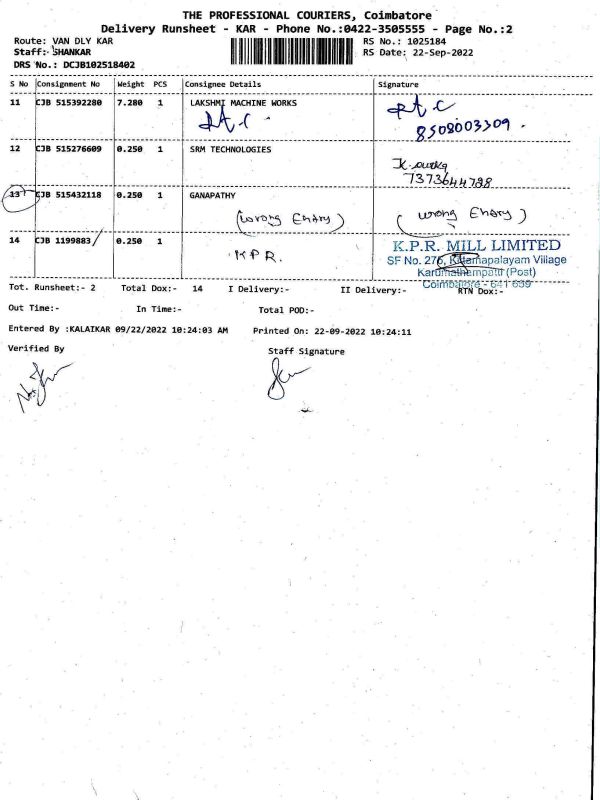 THE PROFESSIONAL COURIERS, Coimbatore
Delivery Runsheet - KAR - Phone No.:0422-3505555 - Page No.:2
Route: VAN DLY KAR RS No.: 1025184
Staff:- SHANKAR RS Date: 22-Sep-2022
DRS No.: DCJB102518402
S No Consignment No Weight PCS Consignee Details Signature
11 CJB 515392280 7.280 1 LAKSHMI MACHINE WORKS
8508003309.
12 CJB 515276609 0.250 1 SRM TECHNOLOGIES
7373644728
13 CJB 515432118 0.250 1 GANAPATHY
(Wrong Entry) (Wrong Entry)
14 CJB 1199883/ 0.250 1 KPR.
K.P.R. MILL LIMITED
SF No. 276, Kittampalayam Village
Karumathampatti (Post)
Coimbatore - 641 659
Tot. Runsheet:- 2 Total Dox:- 14 I Delivery:- II Delivery:- RTN Dox:-
Out Time:- In Time:- Total POD:-
Entered By :KALAIKAR 09/22/2022 10:24:03 AM Printed On: 22-09-2022 10:24:11
Verified By Staff Signature